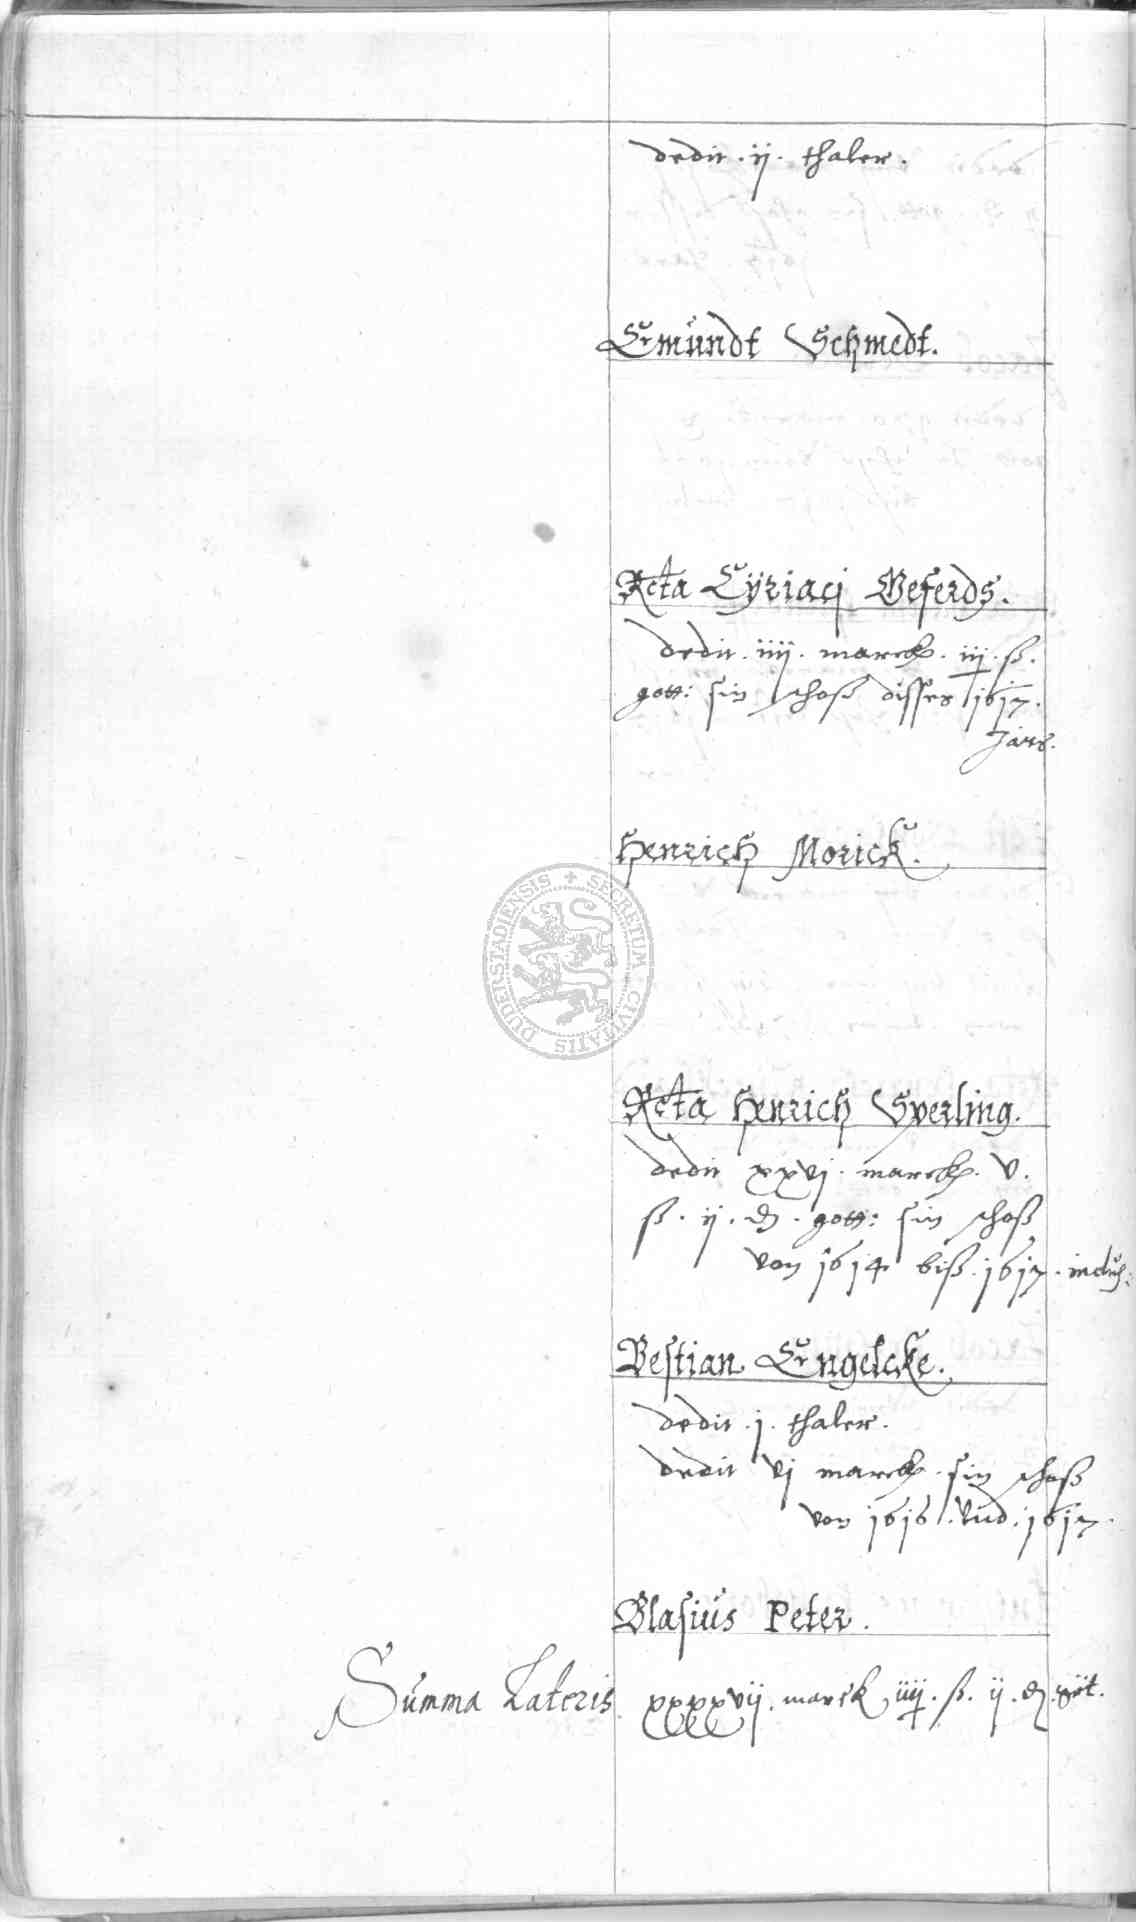 dedit . ij . thaler .
Ermundt Schmedt.
Rcta Cÿriaci Beferds.
dedit . iiij . marck . iij . ß .
gott: sin schoß disses 1617.
Jars.
Henrich Morick.
DUDERSTADIENSIS + SECRETUM CIVITATIS
Rcta Henrich Sperling.
dedit xxvj . marck . v .
ß . ij . d . gott: sin schoß
von 1614 biß . 1617 . inclus:
Bestian Engelcke.
dedit . j . thaler .
dedit vj marck . sin schoß
von 1616 . vnd . 1617.
Blasius Peter.
Summa Lateris. xxxxvij . marck iiij . ß . ij . d . got.